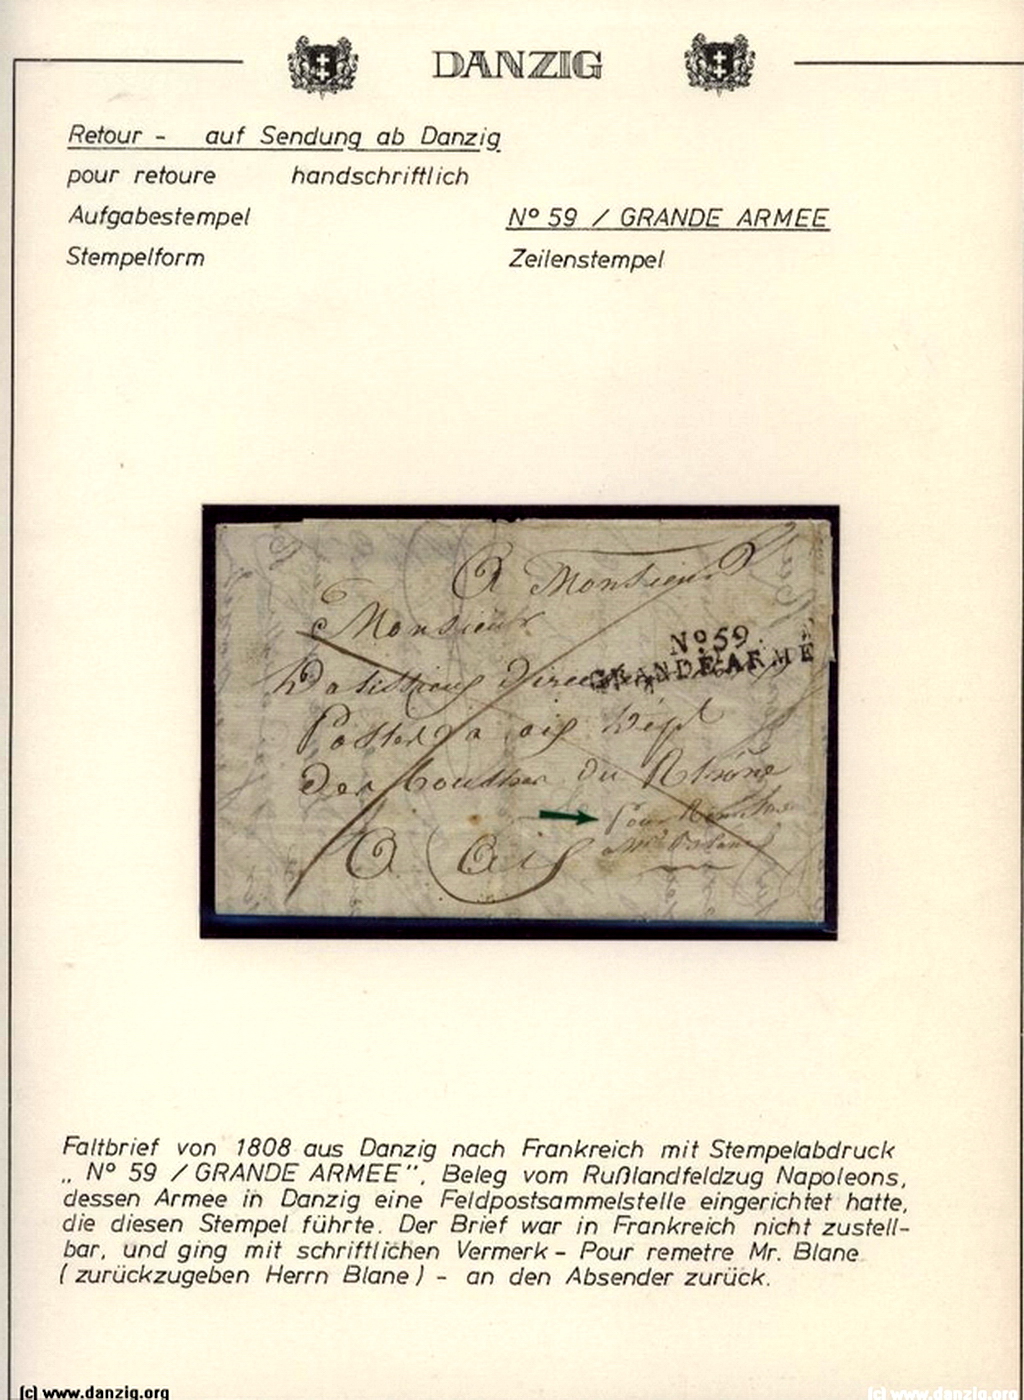 DANZIG
Retour - auf Sendung ab Danzig
pour retoure handschriftlich
Aufgabestempel Nº 59 / GRANDE ARMEE
Stempelform Zeilenstempel
A Monsieur
Monsieur
Nº 59.
GRANDE ARMÉ
Postes a aix Dept
Des bouches Du Rhône
A Aix
Faltbrief von 1808 aus Danzig nach Frankreich mit Stempelabdruck
„ Nº 59 / GRANDE ARMEE", Beleg vom Rußlandfeldzug Napoleons,
dessen Armee in Danzig eine Feldpostsammelstelle eingerichtet hatte,
die diesen Stempel führte. Der Brief war in Frankreich nicht zustell-
bar, und ging mit schriftlichen Vermerk - Pour remetre Mr. Blane
( zurückzugeben Herrn Blane ) - an den Absender zurück.
(c) www.danzig.org (c) www.danzig.org